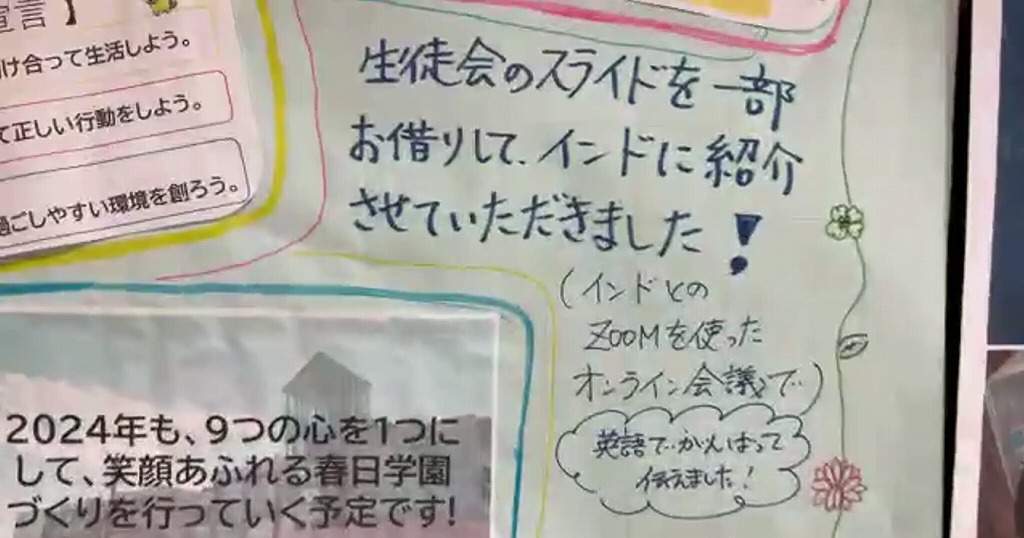 宣言】
け合って生活しよう。
て正しい行動をしよう。
過ごしやすい環境を創ろう。
生徒会のスライドを一部
お借りして、インドに紹介
させていただきました!
(インドとの
ZOOMを使った
オンライン会議で)
英語で、がんばって
伝えました!
2024年も、9つの心を1つに
して、笑顔あふれる春日学園
づくりを行っていく予定です!